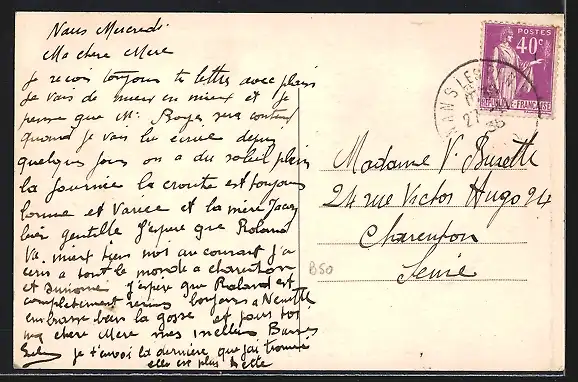 Mercredi
Ma chere Mere
je recois toujours te lettres avec plaisir
Je vais de mieux en mieux et je
pense que Mr Royer sera content
quand je vais lui ecrire depuis
quelques jours on a du soleil plein
la journée la croute est toujours
bonne et Variee et la mère Jacq
bien gentille J'espere que Roland
Va mieux tiens moi au courant j'ai
ecris a tout le monde a charenton
et J'espere que Roland est
completement remis bonjour a Neunette
embrasse bien la gosse et pour toi
ma chere Mere mes meilleurs Baisers
je t'envoi la derniere que j'ai trouvée
elle est plus
POSTES
40c
REPUBLIQUE FRANÇAISE
Madame V.
24 rue Victor Hugo 24
Charenton
Seine
B50